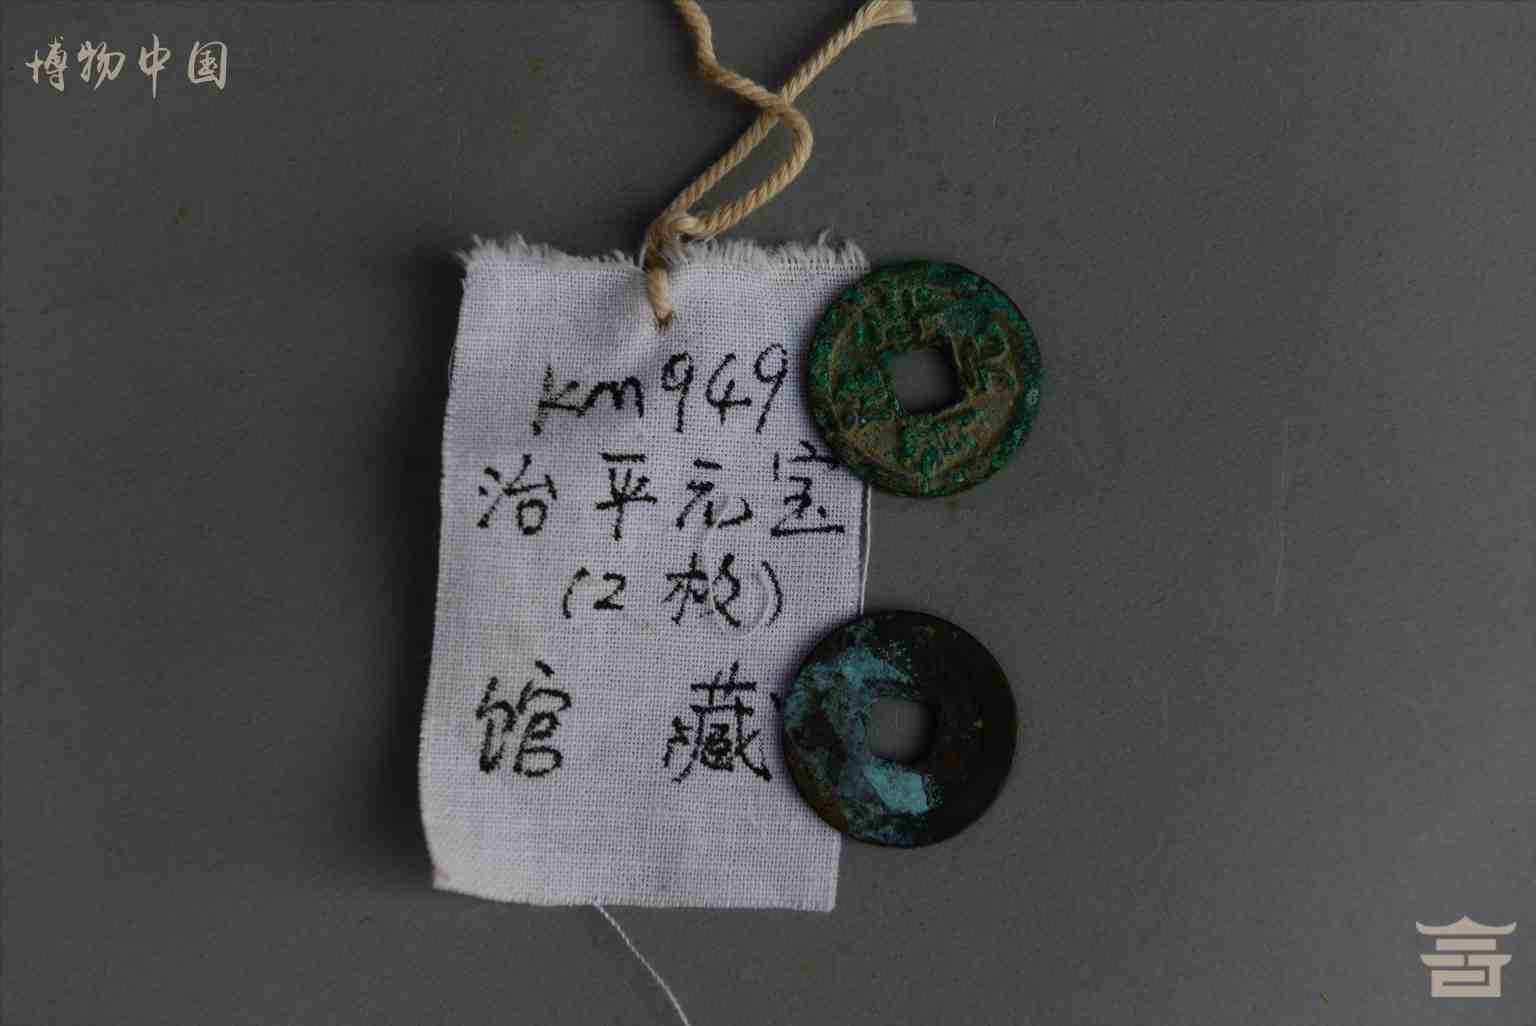 博物中国
km949
治平元宝
(2枚)
馆 藏